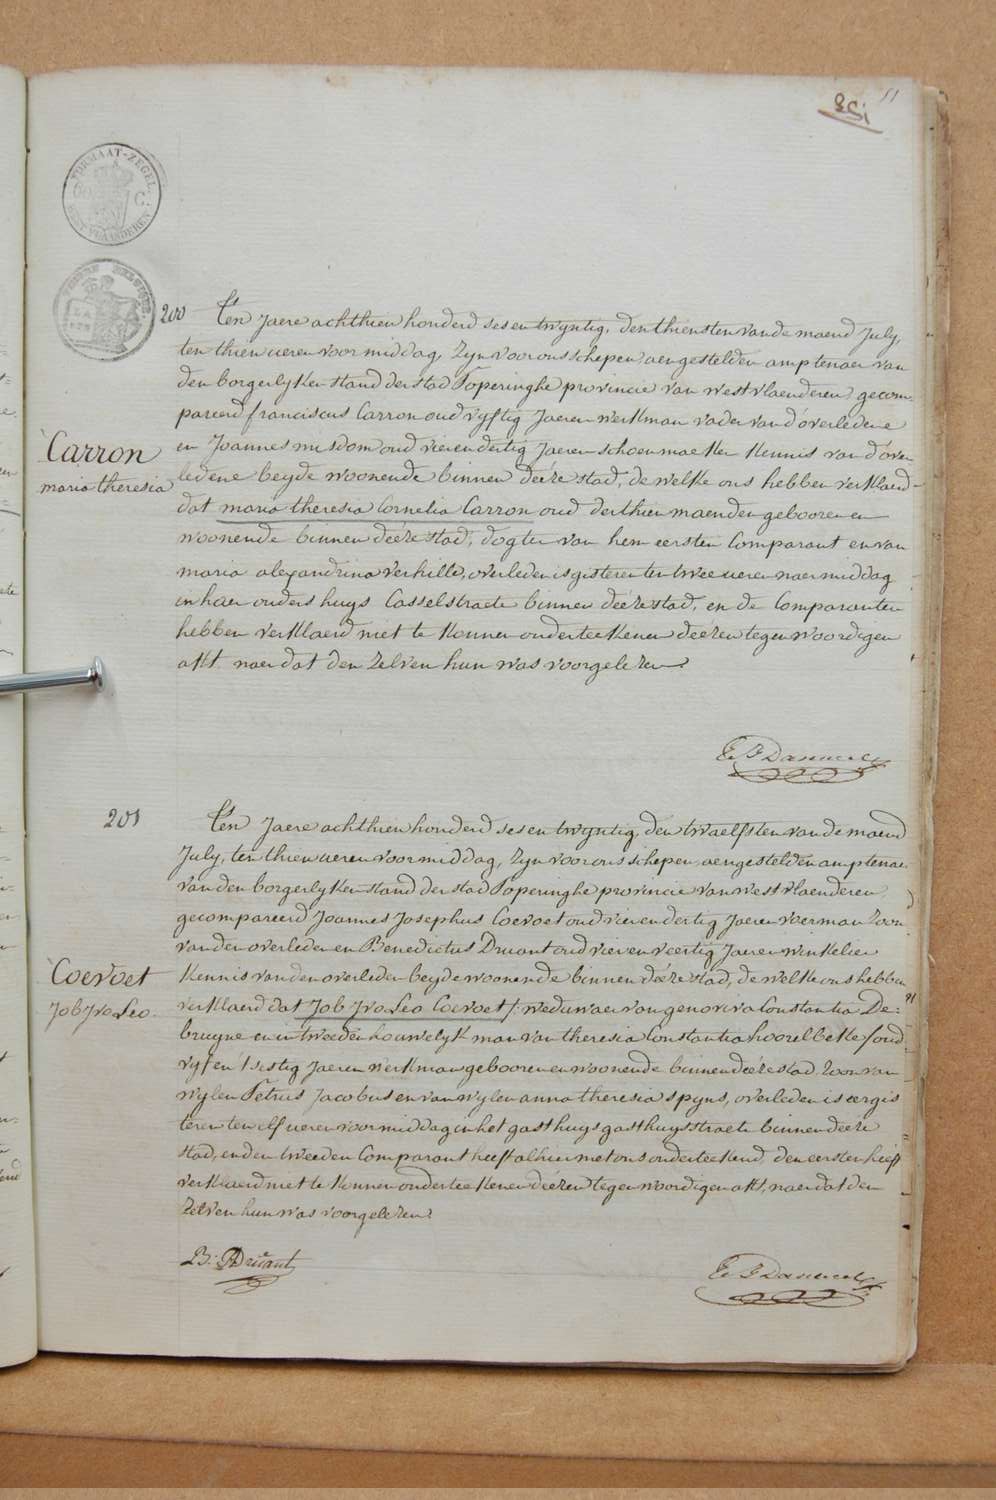 51
FORMAAT-ZEGEL.
C.
WEST VLAANDEREN
200
Ten Jaere achthien honderd ses en twyntig, den thiensten van de maend July,
ten thien ueren voormiddag, Zyn voor ons schepen aengestelden amptenaer van
den borgerlyken stand der stad Poperinghe provincie van westvlaenderen gecom-
pareerd franciscus Carron oud vyftig Jaeren werkman vader van d'overledene
en Joannes musdom oud vier en dertig Jaeren schoenmaeker kennis van d'over
Carron
maria theresia
ledene beyde woonende binnen deéze stad, de welke ons hebben verklaerd
dat maria theresia Cornelia Carron oud derthien maenden gebooren en
woonende binnen deéze stad, dogter van hem eersten Comparant en van
maria alexandrina verhille, overleden is gisteren ten twee ueren naermiddag
in haer ouders huys Casselstraete binnen deéze stad, en de Comparanten
hebben verklaerd niet te konnen onderteekenen deézen tegenwoordigen
akt naer dat den Zelven hun was voorgelezen.
201
Ten Jaere achthien honderd ses en twyntig, den twaelfsten van de maend
July, ten thien ueren voormiddag, Zyn voor ons schepen, aengestelden amptenaer
van den borgerlyken stand der stad Poperinghe provincie van westvlaenderen
gecompareerd Joannes Josephus Coevoet oud vier en dertig Jaeren voerman Zoon
van den overleden en Benedictus Druant oud vier en veertig Jaeren winkelier
Coevoet
Job Jvo Leo.
kennis van den overleden beyde woonende binnen deéze stad, de welke ons hebben
verklaerd dat Job Jvo Leo Coevoet /: weduwaer van genoviva Constantia De:
bruyne en in tweeden houwelyk man van theresia Constantia hoorelbeke / oud
vyf en t'sestig Jaeren werkman gebooren en woonende binnen deéze stad, Zoon van
wylen Petrus Jacobus en van wylen anna theresia spyns, overleden is eergis
teren ten elf ueren voormiddag in het gasthuys gasthuysstraete binnen deéze
stad, en den tweeden Comparant heeft alhier met ons onderteekend, den eersten heeft
verklaerd niet te konnen onderteekenen deezen tegenwoordigen akt, naer dat den
Zelven hun was voorgelezen.
B: Druant